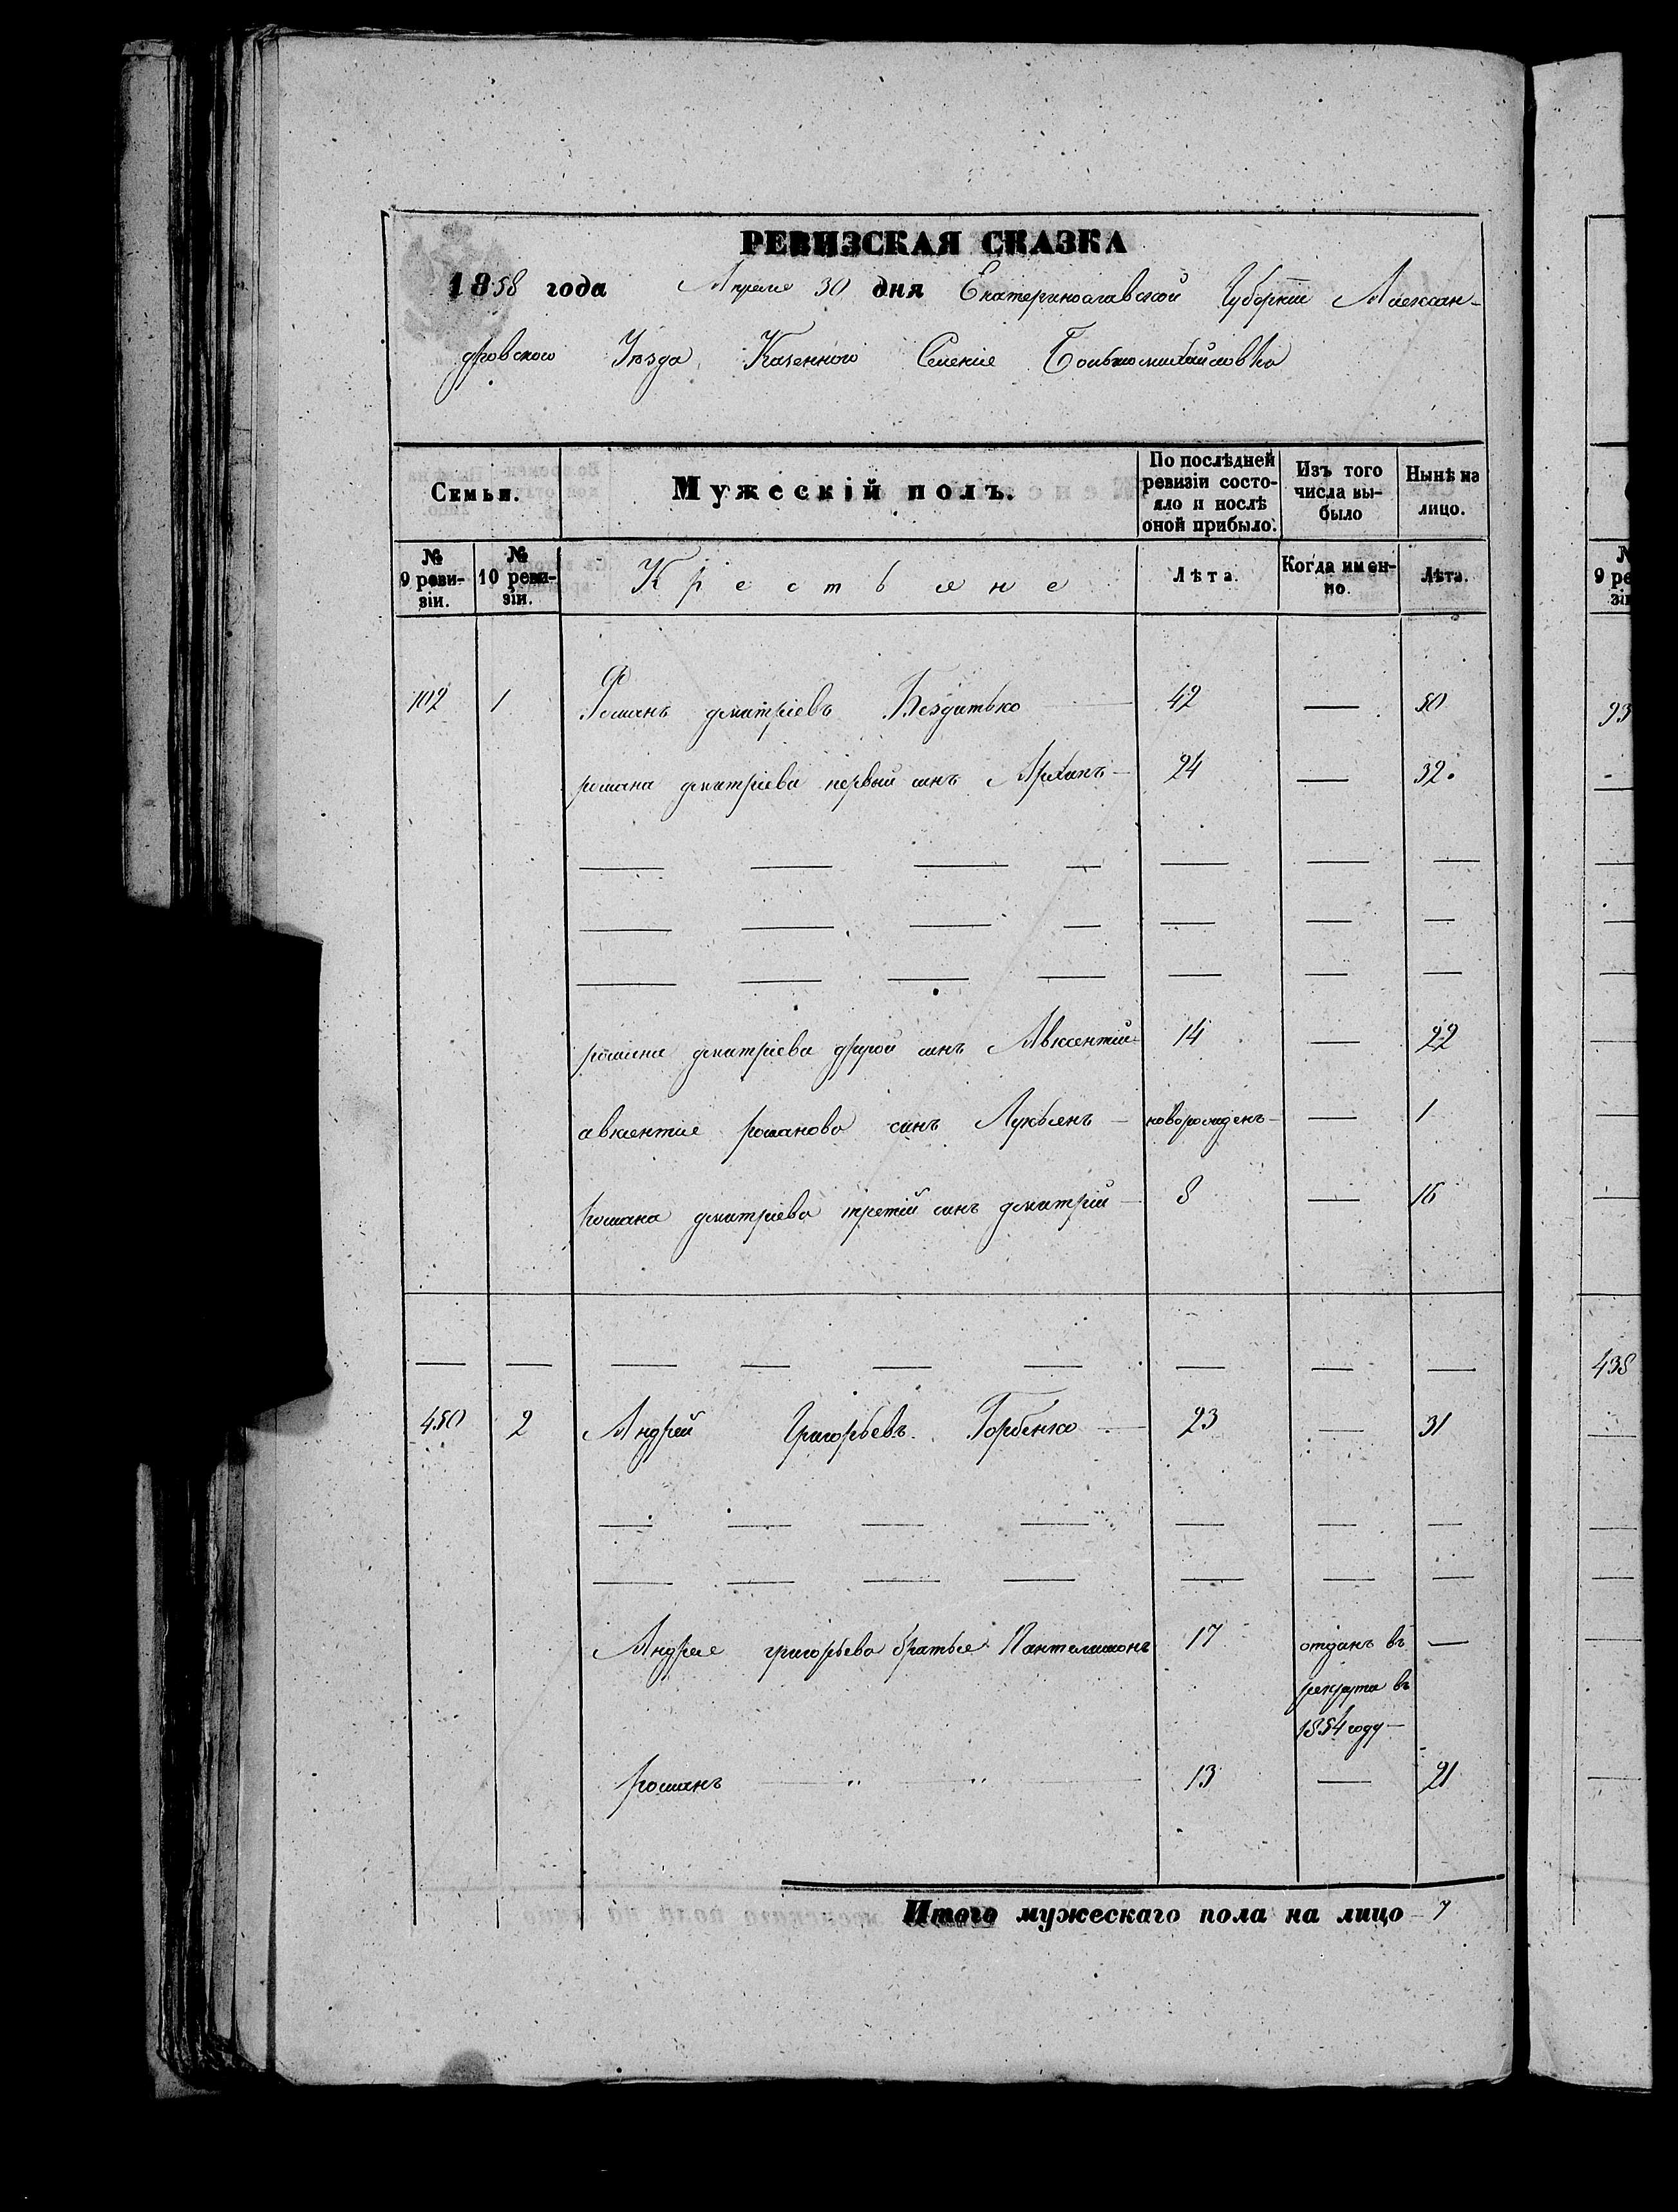 РЕВИЗСКАЯ СКАЗКА
1858 года Апреля 30 дня Екатеринославской Губернии Алексан-
дровского Уезда, Казенного Селения Больше михайловка
Семьи. Мужескій полъ. По послѣдней ревизіи состояло и послѣ оной прибыло. Изъ того числа вы-было Нынѣ на лицо.
№ 9 реви-зіи. № 10 реви-зіи. Крестьяне Лѣта. Когда имен-но. Лѣта.
102 1 Романъ дмитріевъ Бездитько 42 — 50
романа дмитріева первый синъ Архипъ — 24 — 32
— — — — — — —
— — — — — — —
— — — — — — —
романа дмитріева другой синъ Авксентий 14 — 22
авксентия романова синъ Лукьянъ — новорожденъ — — 1
романа дмитріева третій синъ дмитрий — 8 — 16
— — — — — — — — —
450 2 Андрей Григорьевъ Горбенко — 23 — 31
— — — — — — —
— — — — — — —
Андрея григорьева братья Пантелимонъ 17 отданъ въ —
рекрута въ
1854 году —
романъ — " — " — 13 — 21
Итого мужескаго пола на лицо — 7
№ 9 ре
93
438